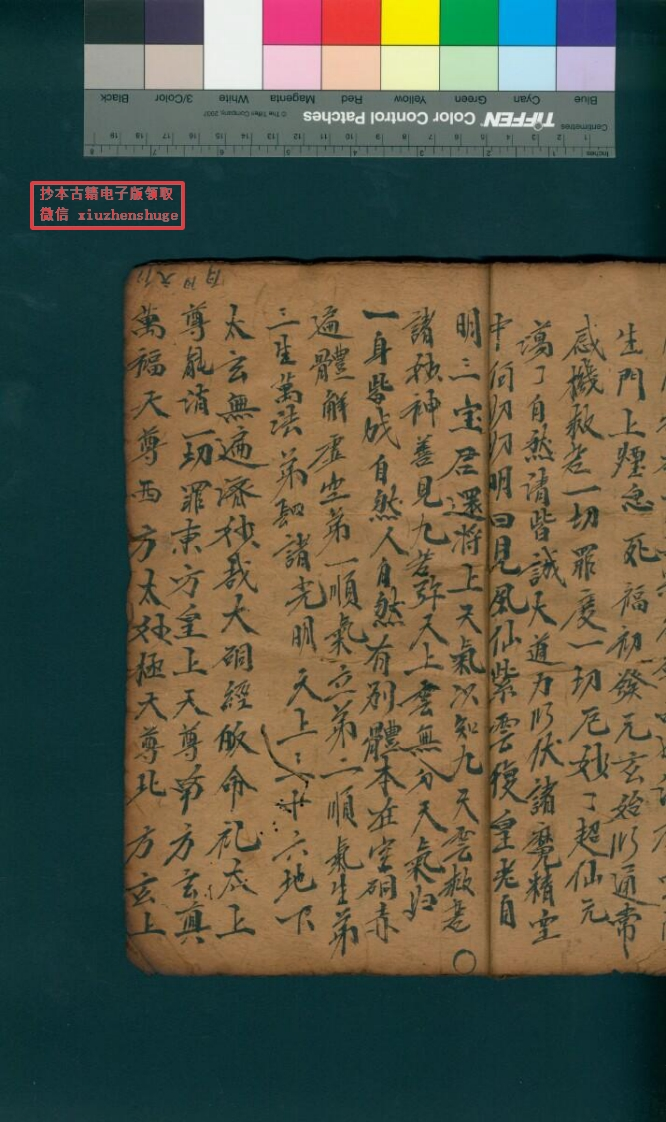 Blue Cyan Green Yellow Red Magenta White 3/Color Black
TIFFEN Color Control Patches
© The Tiffen Company, 2007
Centimetres
Inches
抄本古籍电子版领取
微信 xiuzhenshuge
生門上煙急死福初發元玄始所通常
感機救苦一切罪度一切厄妙丶超仙元
蕩丫自然請皆誠天道力所伏諸魔精空
中何切切明曰見風仙紫雲復皇老自
明三宝君還将上天氣次知九天雲救苦〇
諸妙神善見九若弥天上雲無分天氣归
一身皆成自然人自然有别體本在空硐赤
遍體解虚坐弟一順氣立弟二順氣生弟
三生萬法弟知諸光明天上三十六地下
太玄無遍濟妙哉大硐經皈命礼太上
尊能消一切罪東方皇上天尊南方玄真
萬福天尊西方太妙極天尊北方玄上